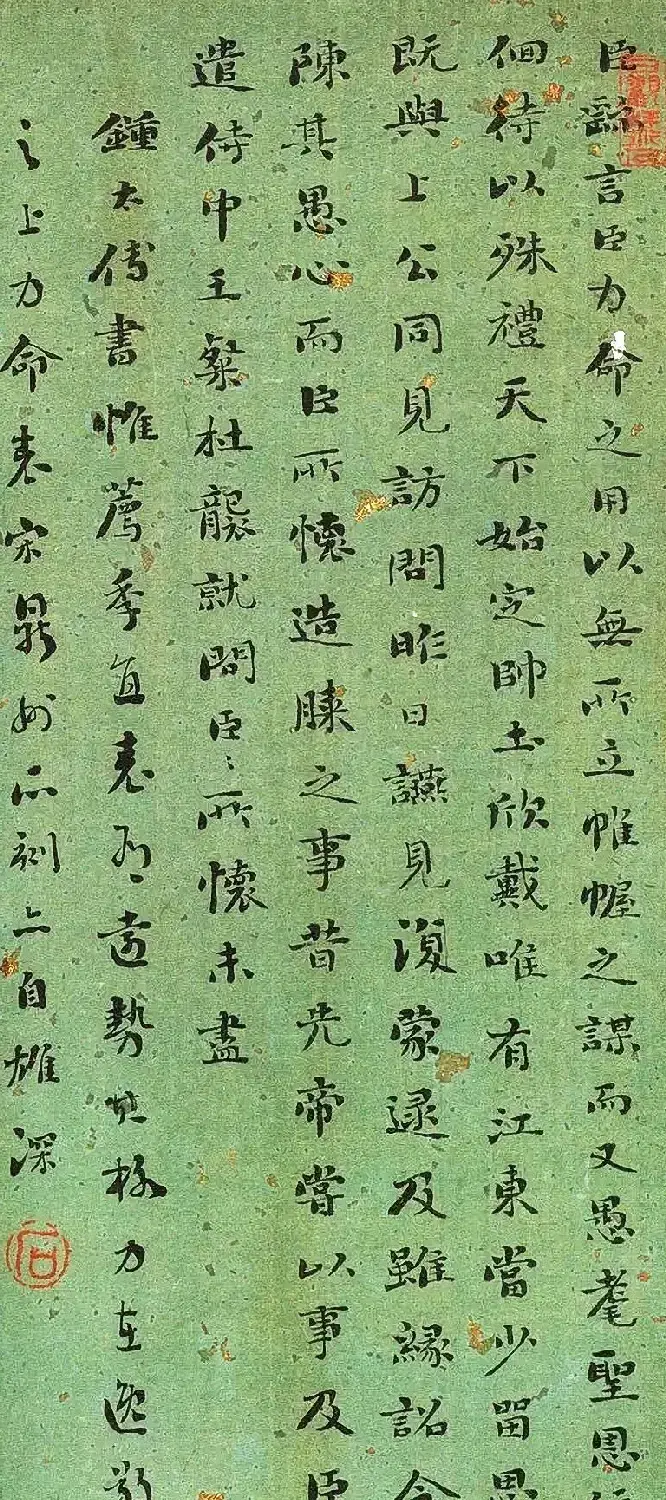 臣繇言臣力命之用以無所立帷幄之謀而又愚耄聖恩
佪待以殊禮天下始定帥土欣戴唯有江東當少留思
既與上公同見訪問昨日讌見復蒙逮及雖緣詔令
陳其愚心而臣所懷造膝之事昔先帝嘗以事及臣
遣侍中王粲杜襲就問臣〻所懷未盡
鍾太傅書惟薦季直表有遠勢其格力在逸
之上力命表宋鼎州所刻亦自雄深
石